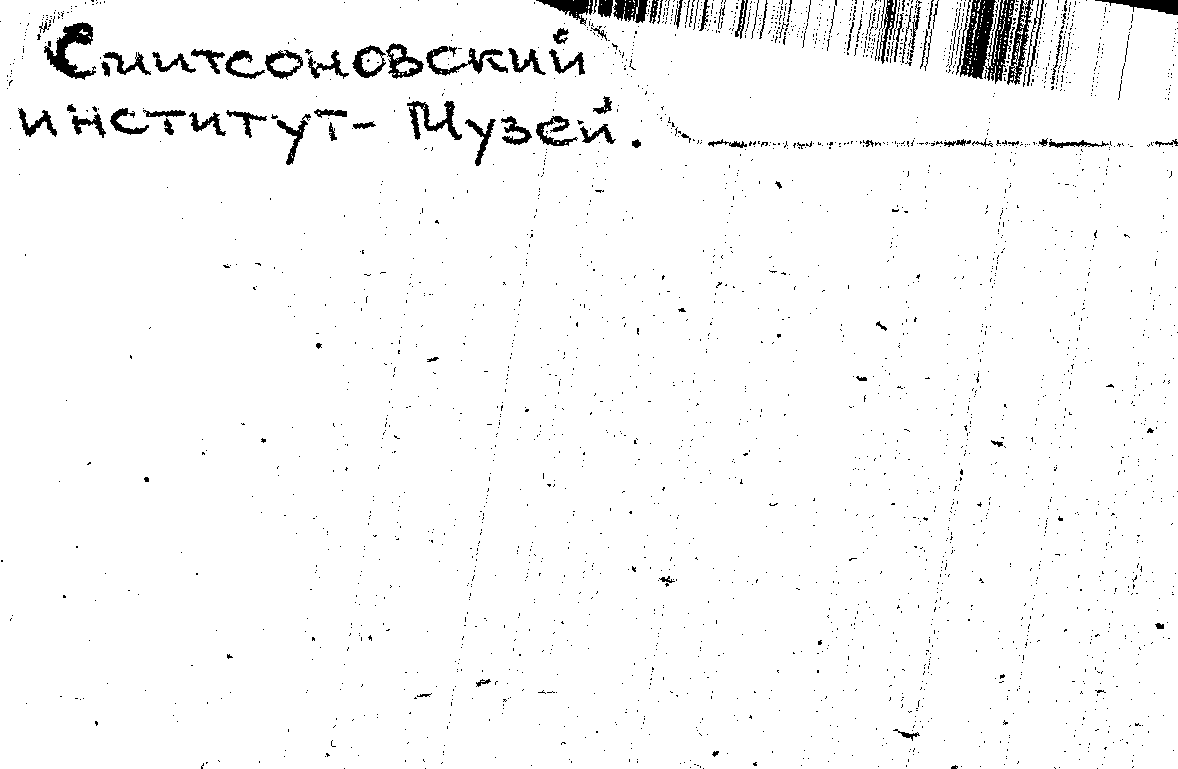 Смитсоновский
институт- Музей.